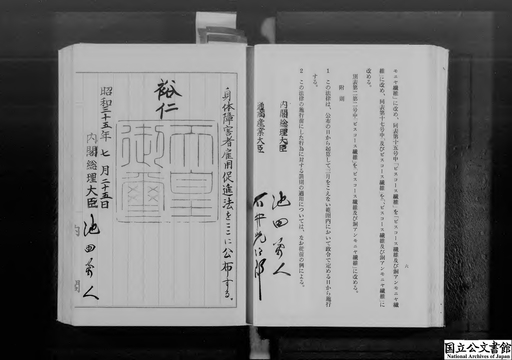 モニヤ繊維」に改め、同表第十五号中「ビスコース繊維」を「ビスコース繊維及び銅アンモニヤ繊
維」に改め、同表第十七号中「及びビスコース繊維」を「、ビスコース繊維及び銅アンモニヤ繊維」に
改める。
別表第二第二号中「ビスコース繊維」を「ビスコース繊維及び銅アンモニヤ繊維」に改める。
附則
1 この法律は、公布の日から起算して三月をこえない範囲内において政令で定める日から施行
する。
2 この法律の施行前にした行為に対する罰則の適用については、なお従前の例による。
内閣総理大臣 池田勇人
通商産業大臣 石井光次郎
六
身体障害者雇用促進法をここに公布する。
裕仁
天皇御璽
昭和三十五年七月二十五日
内閣総理大臣 池田勇人
国立公文書館
National Archives of Japan